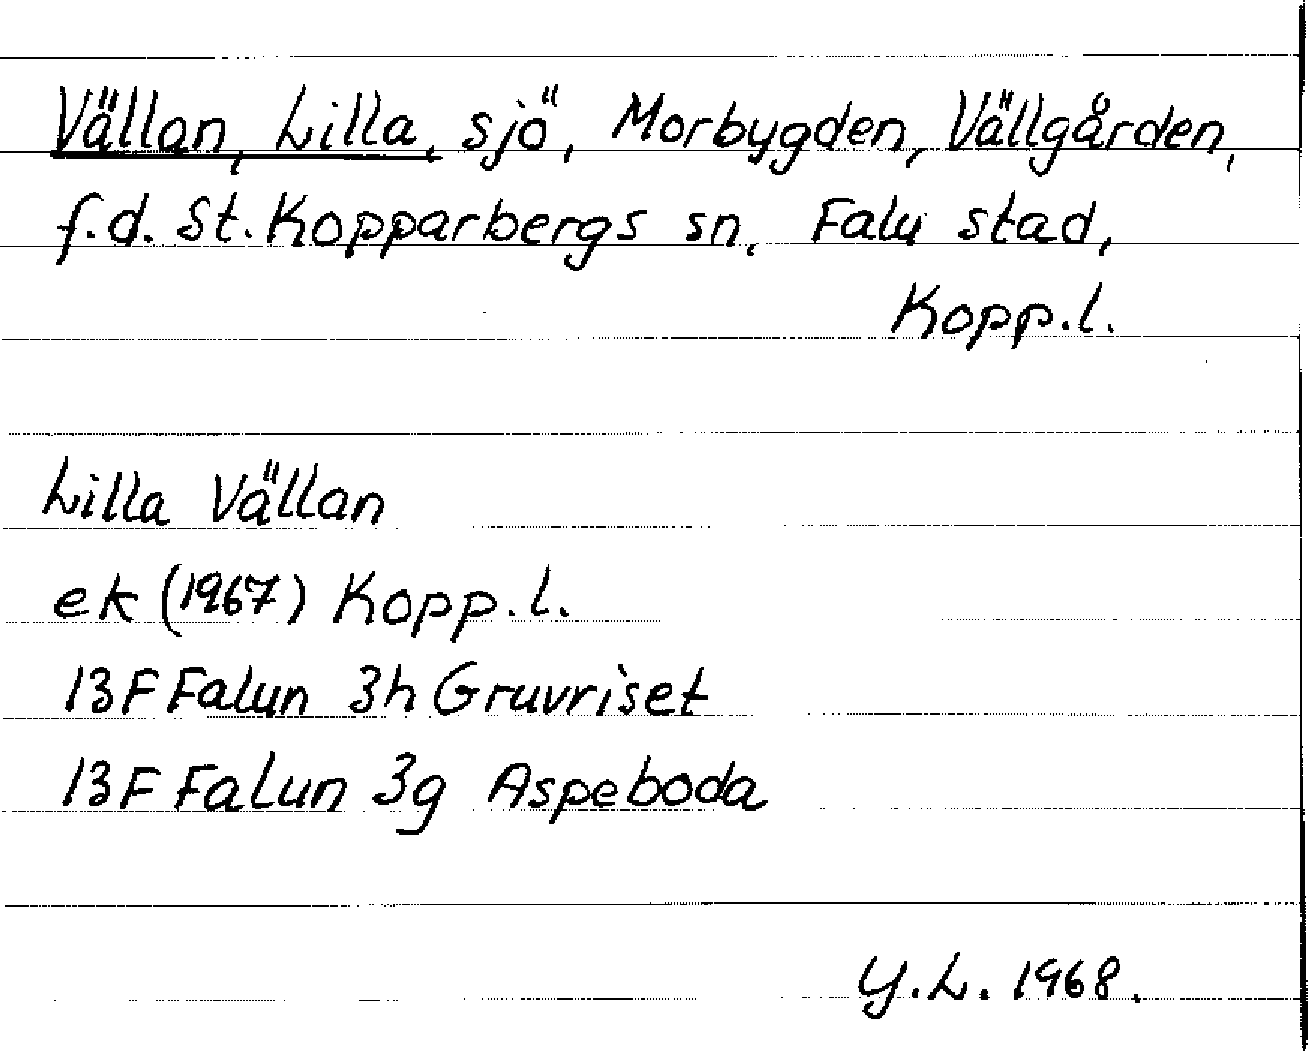 Vällan, Lilla, sjö, Morbygden, Vällgården,
f.d. St. Kopparbergs sn, Falu stad,
Kopp.l.
Lilla Vällan
ek (1967) Kopp.l.
13F Falun 3h Gruvriset
13F Falun 3g Aspeboda
Y.L. 1968.